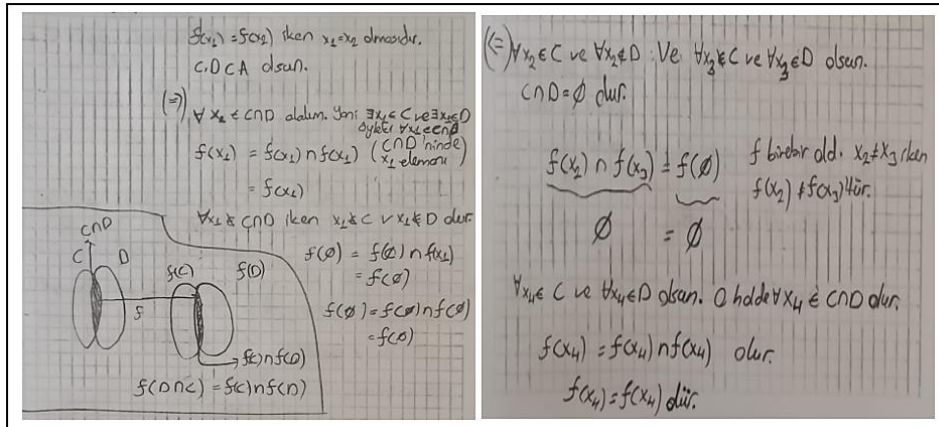 f(x₁) = f(x₂) iken x₁=x₂ olmasıdır.
C,D⊂A olsun.
(⇒) ∀x₁ ∈ C∩D alalım. Yani ∃x₁∈C ve ∃x₁∈D
öyleki ∀x₁∈C∩D
f(x₁) = f(x₁) ∩ f(x₁) (C∩D 'ninde x₁ elemanı)
= f(x₁)
∀x₁ ∉ C∩D iken x₁∉C v x₁∉D dur.
f(∅) = f(∅) ∩ f(x₁)
= f(∅)
f(∅) = f(∅) ∩ f(∅)
= f(∅)
C∩D
C D
f(C) f(D)
f
f(C)∩f(D)
f(D∩C) = f(C)∩f(D)
(⇐) ∀x₂∈C ve ∀x₂∉D. Ve ∀x₃∉C ve ∀x₃∈D olsun.
C∩D = ∅ dur.
f(x₂) ∩ f(x₃) = f(∅) f birebir old. x₂≠x₃ iken
f(x₂) ≠ f(x₃) 'tür.
∅ = ∅
∀x₄∈C ve ∀x₄∈D olsun. O halde ∀x₄ ∈ C∩D dur.
f(x₄) = f(x₄) ∩ f(x₄) olur.
f(x₄) = f(x₄) dür.